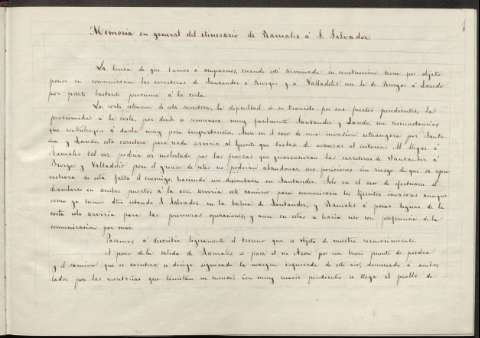 Memoria en general del itinerario de Ramales á S. Salvador
La línea de que vamos á ocuparnos, cuando esté terminada su construcción tiene por objeto
poner en comunicacion las carreteras de Santander á Burgos y á Valladolid con la de Burgos á Laredo
por punto bastante proximo á la costa.
La corta estension de esta carretera, la dificultad de su transito por sus fuertes pendientes, la
proximidad á la costa, por donde se comunican muy facilmente Santander y Laredo son circunstancias
que contribuyen á darla muy poca importancia. Aun en el caso de una invasion estrangera por Santo
ña y Laredo esta carretera para nada serviria al Ejercito que tratase de avanzar al interior. Al llegar á
Ramales del mar podria ser molestado por las fuerzas que guarneciesen las carreteras de Santander á
Burgos y Valladolid pero el grueso de ellas no podrian abandonar sus posiciones sin riesgo de que se apo
derase de ella el enemigo, haciendo un desembarco en Santander. Solo en el caso de efectuarse el
desembarco en ambos puertos á la vez serviria este camino para comunicarse los Ejercitos invasores aunque
como ya hemos dicho estando S. Salvador en la bahia de Santander, y Ramales á pocas leguas de la
costa solo serviria para las primeras operaciones, y aun en estas se haria uso con preferencia de la
comunicacion por mar.
Pasemos á describir ligeramente el terreno que es objeto de nuestro reconocimiento.
Á poco de la salida de Ramales se pasa el rio Ason por un buen puente de piedra
y el camino que es carretero se dirige siguiendo la margen izquierda de este rio, dominado á ambos
lados por las montañas que limitan su cuenca con muy suave pendiente se llega al pueblo de